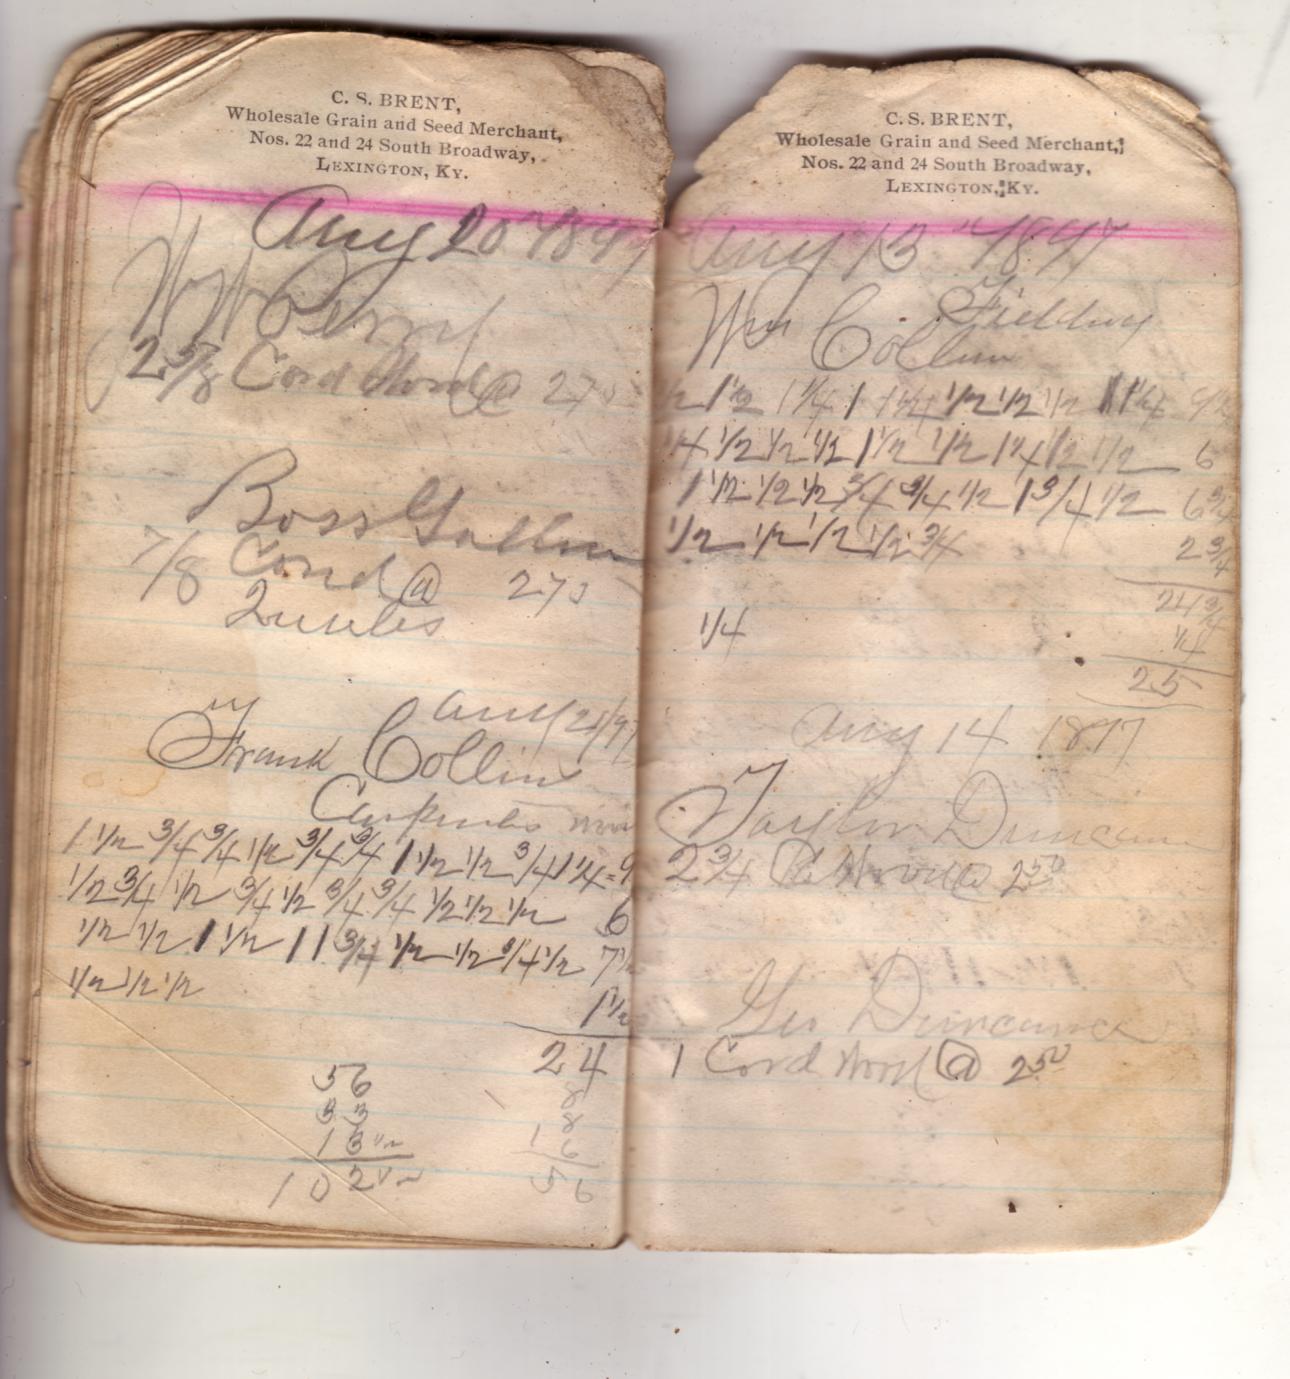 C. S. BRENT,
Wholesale Grain and Seed Merchant,
Nos. 22 and 24 South Broadway,
LEXINGTON, KY.
Aug 20 1897
Perry
2 5/8 Cord Wood @ 275
Boss
7/8 Cord @ 275
Aug 21/97
Frank Collins
1 1/2 3/4 3/4 1/2 3/4 3/4 1 1/2 1/2 3/4 1 1/4 = 9
1/2 3/4 1/2 3/4 1/2 3/4 3/4 1/2 1/2 1/2 6
1/2 1/2 1 1/2 1 1 3/4 1/2 1/2 3/4 1/2 7 1/2
1/2 1/2 1/2
1 1/2
24
56
33
13 1/2
102 1/2
8
8
1 6
56
C. S. BRENT,
Wholesale Grain and Seed Merchant,
Nos. 22 and 24 South Broadway,
LEXINGTON, KY.
Aug 13 1897
Wm Collins
1/2 1 1/2 1 1/4 1 1 1/4 1/2 1/2 1/2 1 1 1/4 9 1/2
1/4 1/2 1/2 1/2 1 1/2 1/2 1/2 1/2 6
1 1/2 1/2 1/2 3/4 3/4 1/2 1 3/4 1/2 6 3/4
1/2 1/2 1/2 1/2 3/4 2 3/4
24 3/4
1/4 1/4
25
Aug 14 1897
Taylor Duncan
2 3/4 @ 250
Geo Duncan
1 Cord Wood @ 250